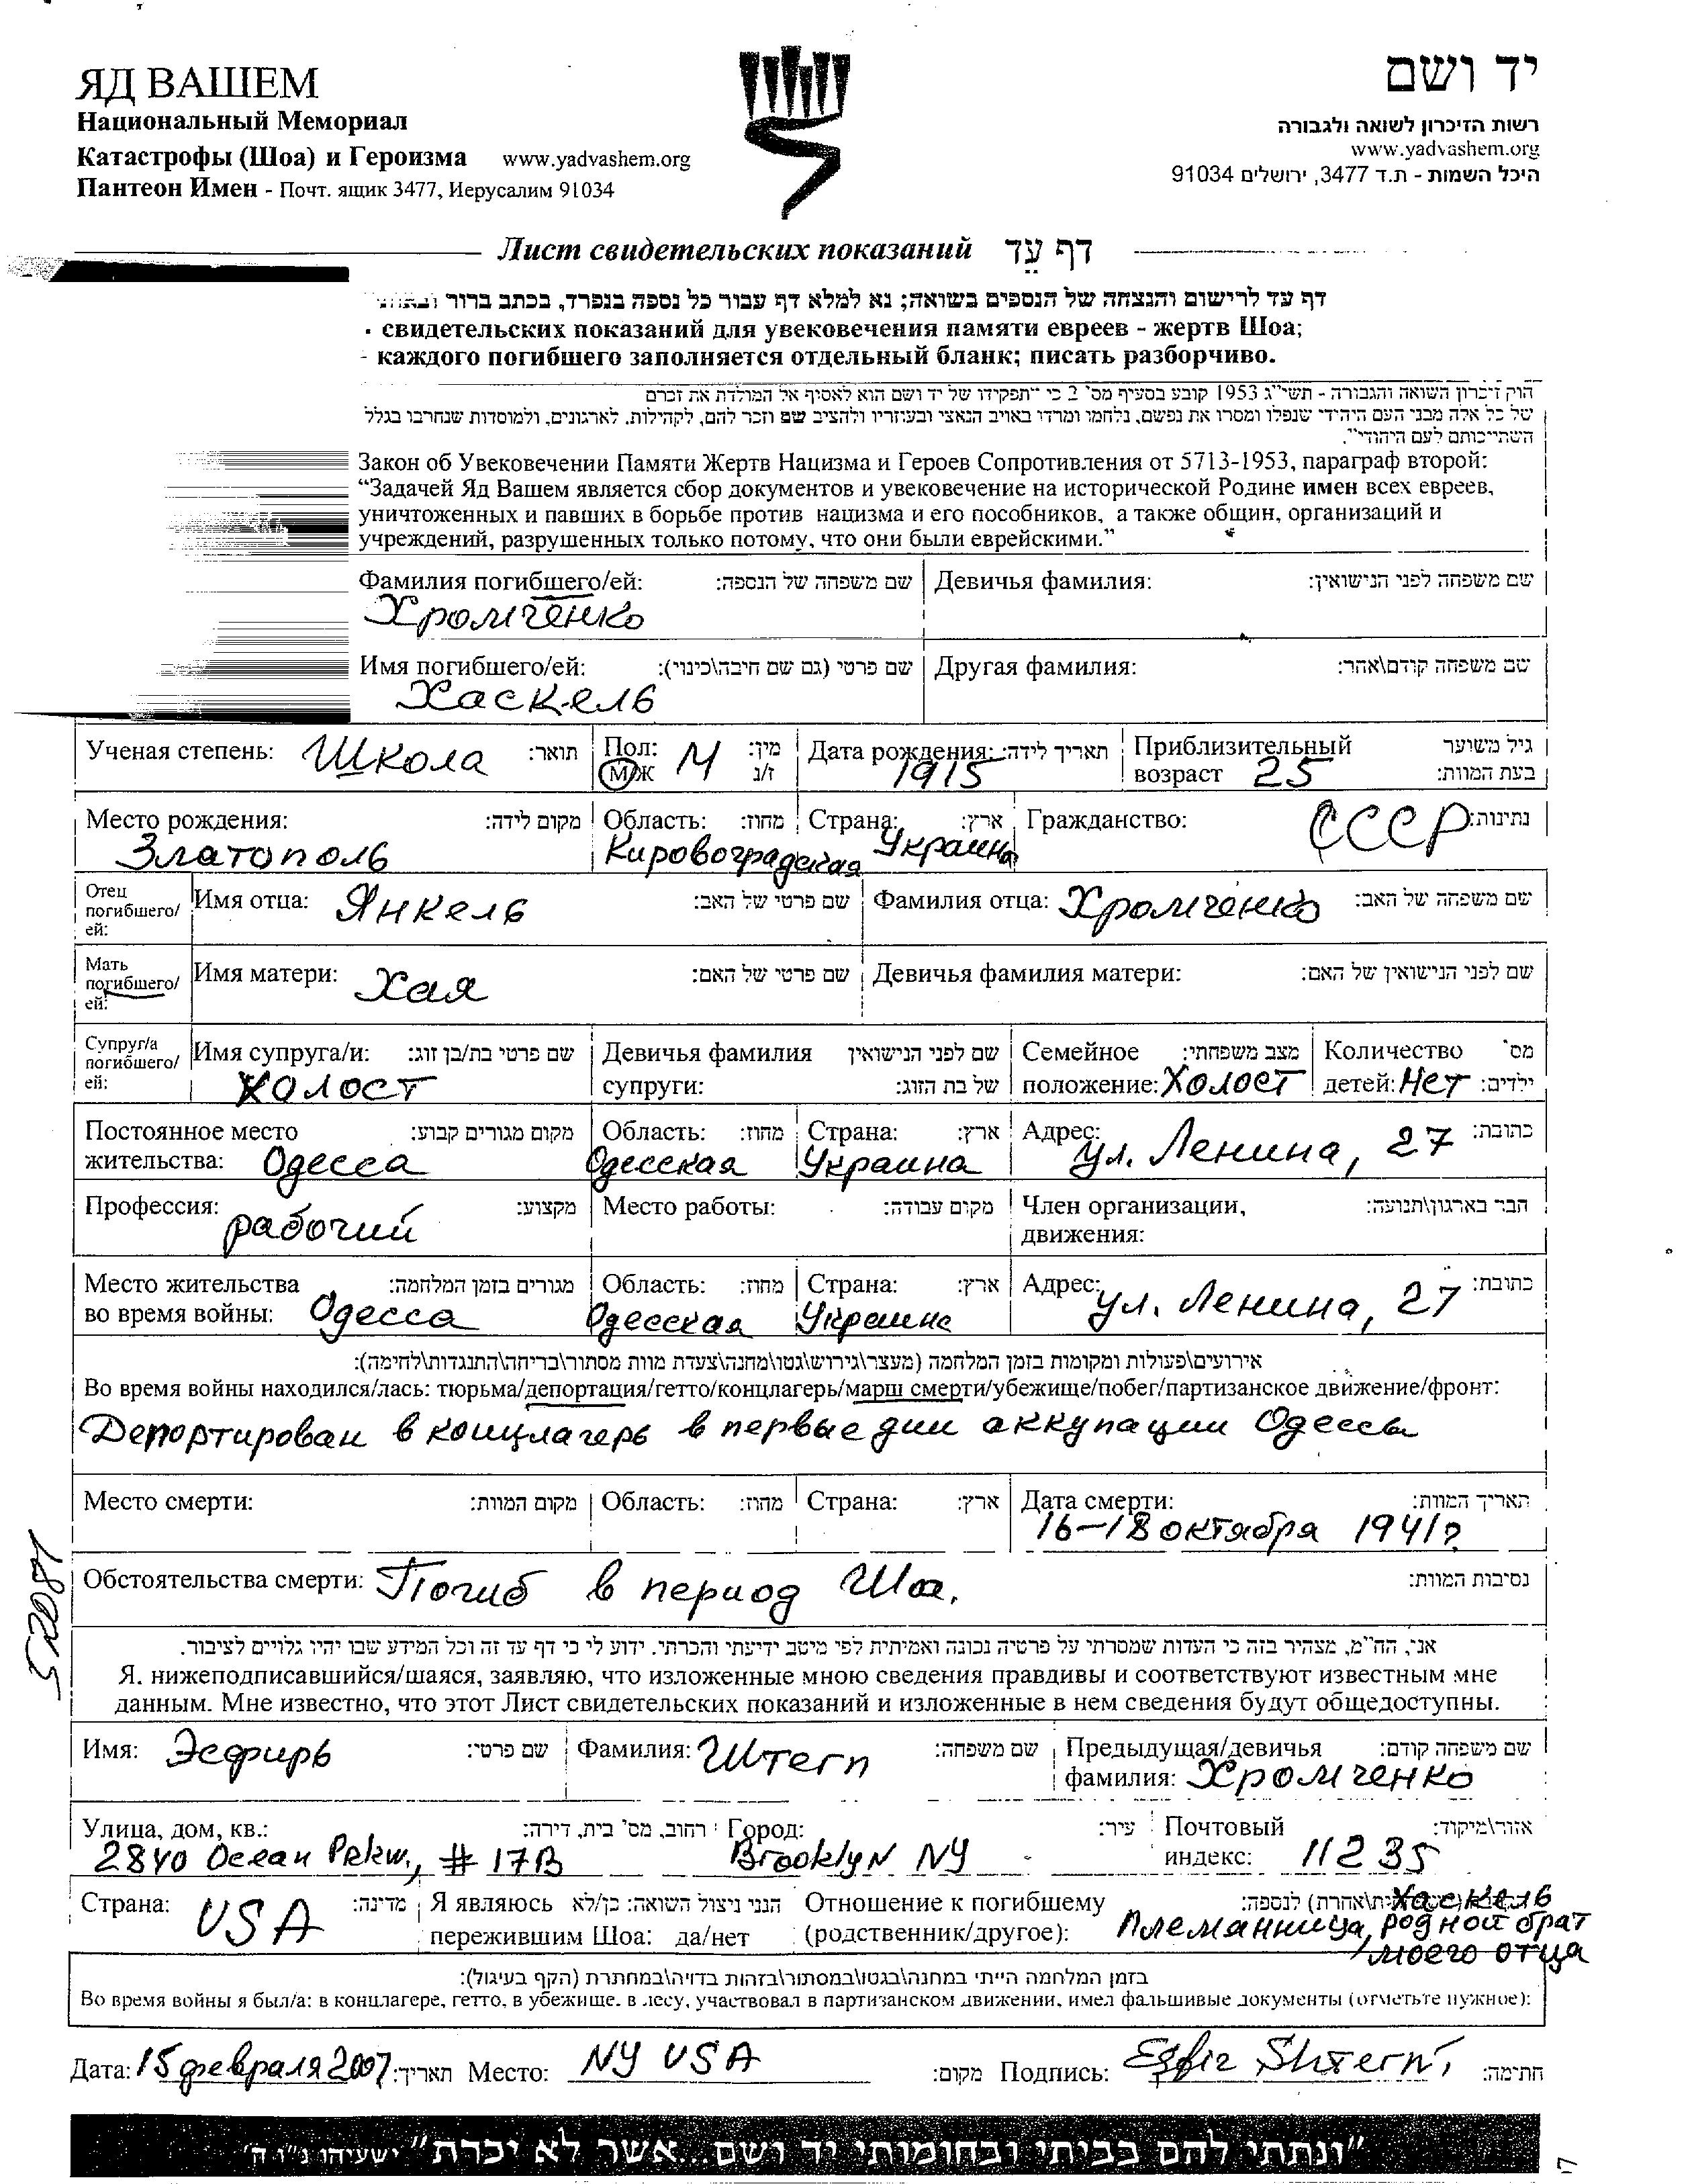 ЯД ВАШЕМ
Национальный Мемориал
Катастрофы (Шоа) и Героизма www.yadvashem.org
Пантеон Имен - Почт. ящик 3477, Иерусалим 91034
יד ושם
רשות הזיכרון לשואה ולגבורה
www.yadvashem.org
היכל השמות - ת.ד 3477, ירושלים 91034
Лист свидетельских показаний דף עֵד
דף עד לרישום והנצחה של הנספים בשואה; נא למלא דף עבור כל נספה בנפרד, בכתב ברור
свидетельских показаний для увековечения памяти евреев - жертв Шоа;
каждого погибшего заполняется отдельный бланк; писать разборчиво.
חוק זיכרון השואה והגבורה - תשי"ג 1953 קובע בסעיף מס' 2 כי "תפקידו של יד ושם הוא לאסוף אל המולדת את זכרם
של כל אלה מבני העם היהודי שנפלו ומסרו את נפשם, נלחמו ומרדו באויב הנאצי ובעוזריו ולהציב שם וזכר להם, לקהילות, לארגונים, ולמוסדות שנחרבו בגלל
השתייכותם לעם היהודי".
Закон об Увековечении Памяти Жертв Нацизма и Героев Сопротивления от 5713-1953, параграф второй:
“Задачей Яд Вашем является сбор документов и увековечение на исторической Родине имен всех евреев,
уничтоженных и павших в борьбе против нацизма и его пособников, а также общин, организаций и
учреждений, разрушенных только потому, что они были еврейскими.”
Фамилия погибшего/ей: שם משפחה של הנספה: Девичья фамилия: שם משפחה לפני הנישואין:
Хромченко
Имя погибшего/ей: שם פרטי (גם שם חיבה\כינוי): Другая фамилия: שם משפחה קודם\אחר:
Хаскель
Ученая степень: Школа תואר: Пол: М מין: Дата рождения: תאריך לידה: Приблизительный גיל משוער
М/Ж ז/נ 1915 возраст 25 בעת המוות:
Место рождения: מקום לידה: Область: מחוז: Страна: ארץ: Гражданство: СССР נתינות:
Златополь Кировоградская Украина
Отец погибшего/ей: Имя отца: Янкель שם פרטי של האב: Фамилия отца: Хромченко שם משפחה של האב:
Мать погибшего/ей: Имя матери: Хая שם פרטי של האם: Девичья фамилия матери: שם לפני הנישואין של האם:
Супруг/а погибшего/ей: Имя супруга/и: שם פרטי בת/בן זוג: Девичья фамилия שם לפני הנישואין Семейное מצב משפחתי: Количество מס'
холост супруги: של בת הזוג: положение: Холост детей: Нет ילדים:
Постоянное место מקום מגורים קבוע: Область: מחוז: Страна: ארץ: Адрес: כתובת:
жительства: Одесса Одесская Украина ул. Ленина, 27
Профессия: מקצוע: Место работы: מקום עבודה: Член организации, חבר בארגון\תנועה:
рабочий движения:
Место жительства מגורים בזמן המלחמה: Область: מחוז: Страна: ארץ: Адрес: כתובת:
во время войны: Одесса Одесская Украина ул. Ленина, 27
אירועים\פעולות ומקומות בזמן המלחמה (מעצר\גירוש\גטו\מחנה\צעדת מוות מסתור\בריחה\התנגדות\לחימה):
Во время войны находился/лась: тюрьма/депортация/гетто/концлагерь/марш смерти/убежище/побег/партизанское движение/фронт:
Депортирован в концлагерь в первые дни аккупации Одессы
Место смерти: מקום המוות: Область: מחוז: Страна: ארץ: Дата смерти: תאריך המוות:
16-18 октября 1941?
Обстоятельства смерти: Погиб в период Шоа. נסיבות המוות:
52081
אני, הח"מ, מצהיר בזה כי העדות שמסרתי על פרטיה נכונה ואמיתית לפי מיטב ידיעתי והכרתי. ידוע לי כי דף עד זה וכל המידע שבו יהיו גלויים לציבור.
Я, нижеподписавшийся/шаяся, заявляю, что изложенные мною сведения правдивы и соответствуют известным мне
данным. Мне известно, что этот Лист свидетельских показаний и изложенные в нем сведения будут общедоступны.
Имя: Эсфирь שם פרטי: Фамилия: Штерн שם משפחה: Предыдущая/девичья שם משפחה קודם:
фамилия: Хромченко
Улица, дом, кв.: רחוב, מס' בית, דירה: Город: עיר: Почтовый אזור\מיקוד:
2840 Ocean Pekw., # 17B Brooklyn NY индекс: 11235
Страна: USA מדינה: Я являюсь הנני ניצול השואה: כן/לא Отношение к погибшему לנספה: Хаскель
пережившим Шоа: да/нет (родственник/другое): Племянница, родной брат
моего отца
בזמן המלחמה הייתי במחנה\בגטו\במסתור\בזהות בדויה\במחתרת (הקף בעיגול):
Во время войны я был/а: в концлагере, гетто, в убежище, в лесу, участвовал в партизанском движении, имел фальшивые документы (отметьте нужное):
Дата: 15 февраля 2007 תאריך: Место: NY USA מקום: Подпись: Esfir Shtern חתימה:
"ונתתי להם בביתי ובחומותי יד ושם...אשר לא יכרת" ישעיהו נ"ו ה'